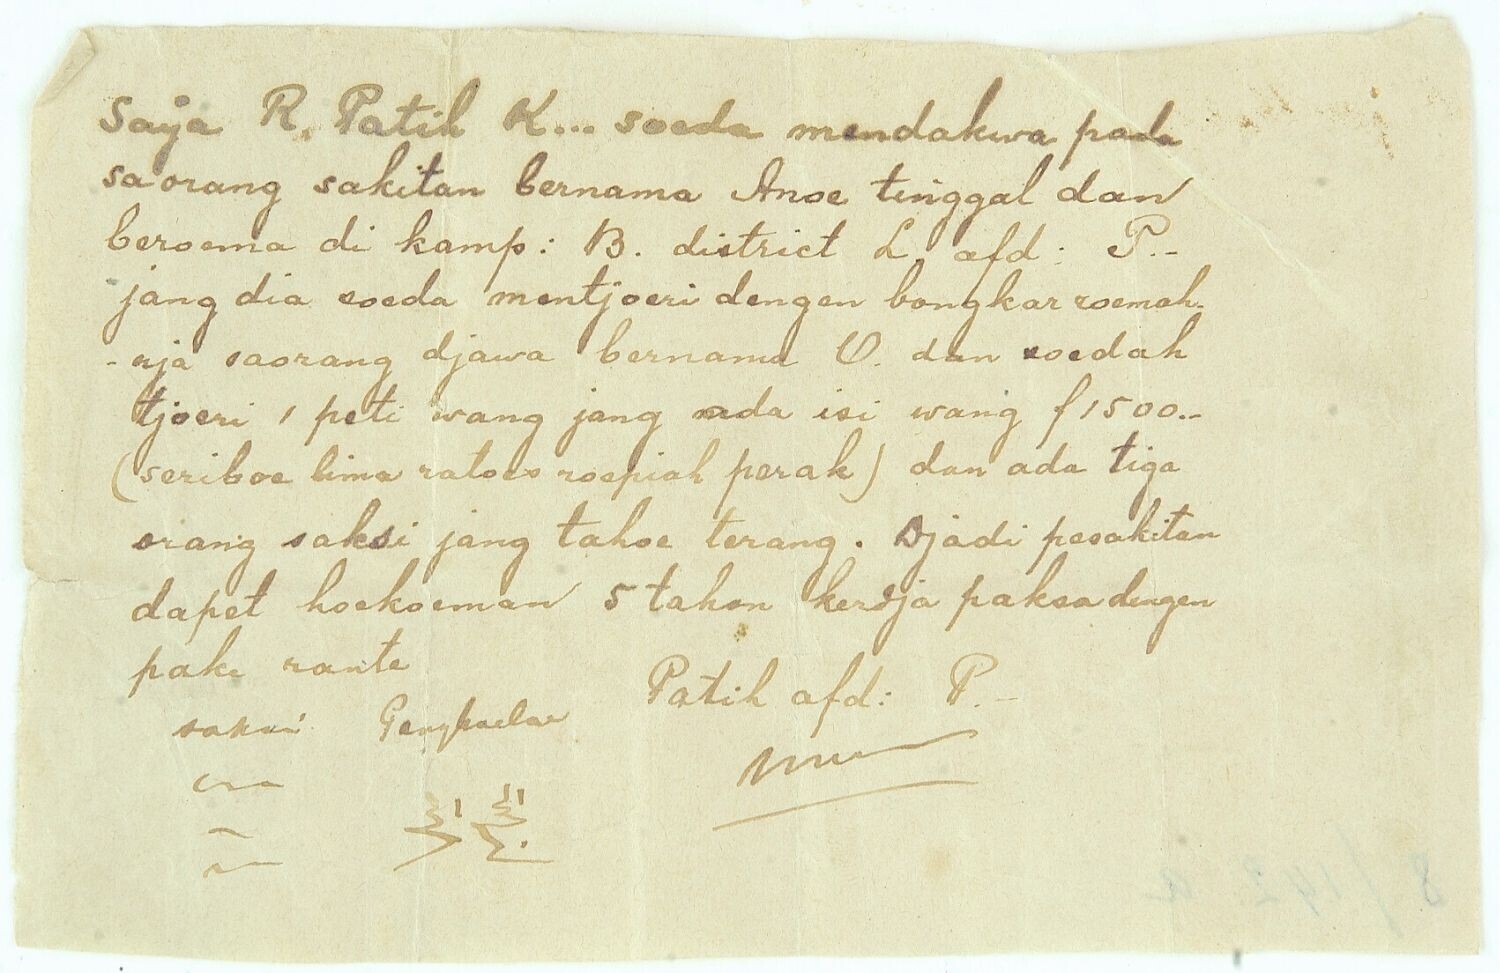 Saja R. Patih K... soeda mendakwa pada
saorang sakitan bernama Anoe tinggal dan
beroema di kamp: B. district L. afd: P.-
jang dia soeda mentjoeri dengen bongkar roemah-
-nja saorang djawa bernama O. dan soedah
tjoeri 1 peti wang jang ada isi wang f1500.-
(seriboe lima ratoes roepiah perak) dan ada tiga
orang saksi jang tahoe terang. Djadi pesakitan
dapet hoekoeman 5 tahon kerdja paksa dengen
pake rante
saksi
Patih afd: P.-
8/142 a